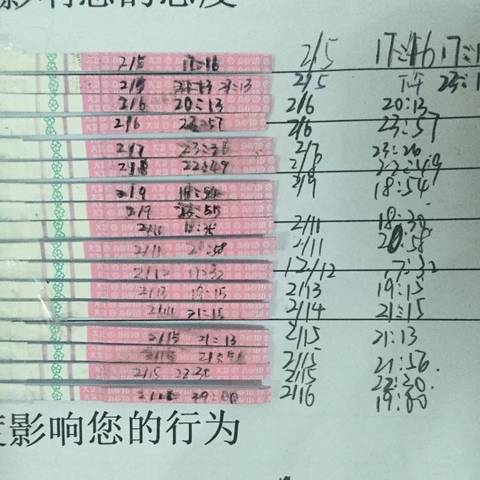 影响您的态度
2/5 17:16 2/5 17:16 17:1
2/5 23:13 2/5 23:1
2/6 20:13 2/6 20:13
2/6 23:57 2/6 23:57
2/7 23:26 2/7 23:26
2/8 22:49 22:49
2/9 18:54 2/9 18:54
2/9
2/11 18:38
2/11 20:58 2/11 20:58
2/12 17:32 2/12 17:32
2/13 19:15 2/13 19:15
2/14 21:15 2/14 21:15
2/15 21:13 2/15 21:13
2/15 21:56 2/15 21:56.
2/15 22:30 2/15 22:30.
2/16 19:00 2/16 19:00
度影响您的行为